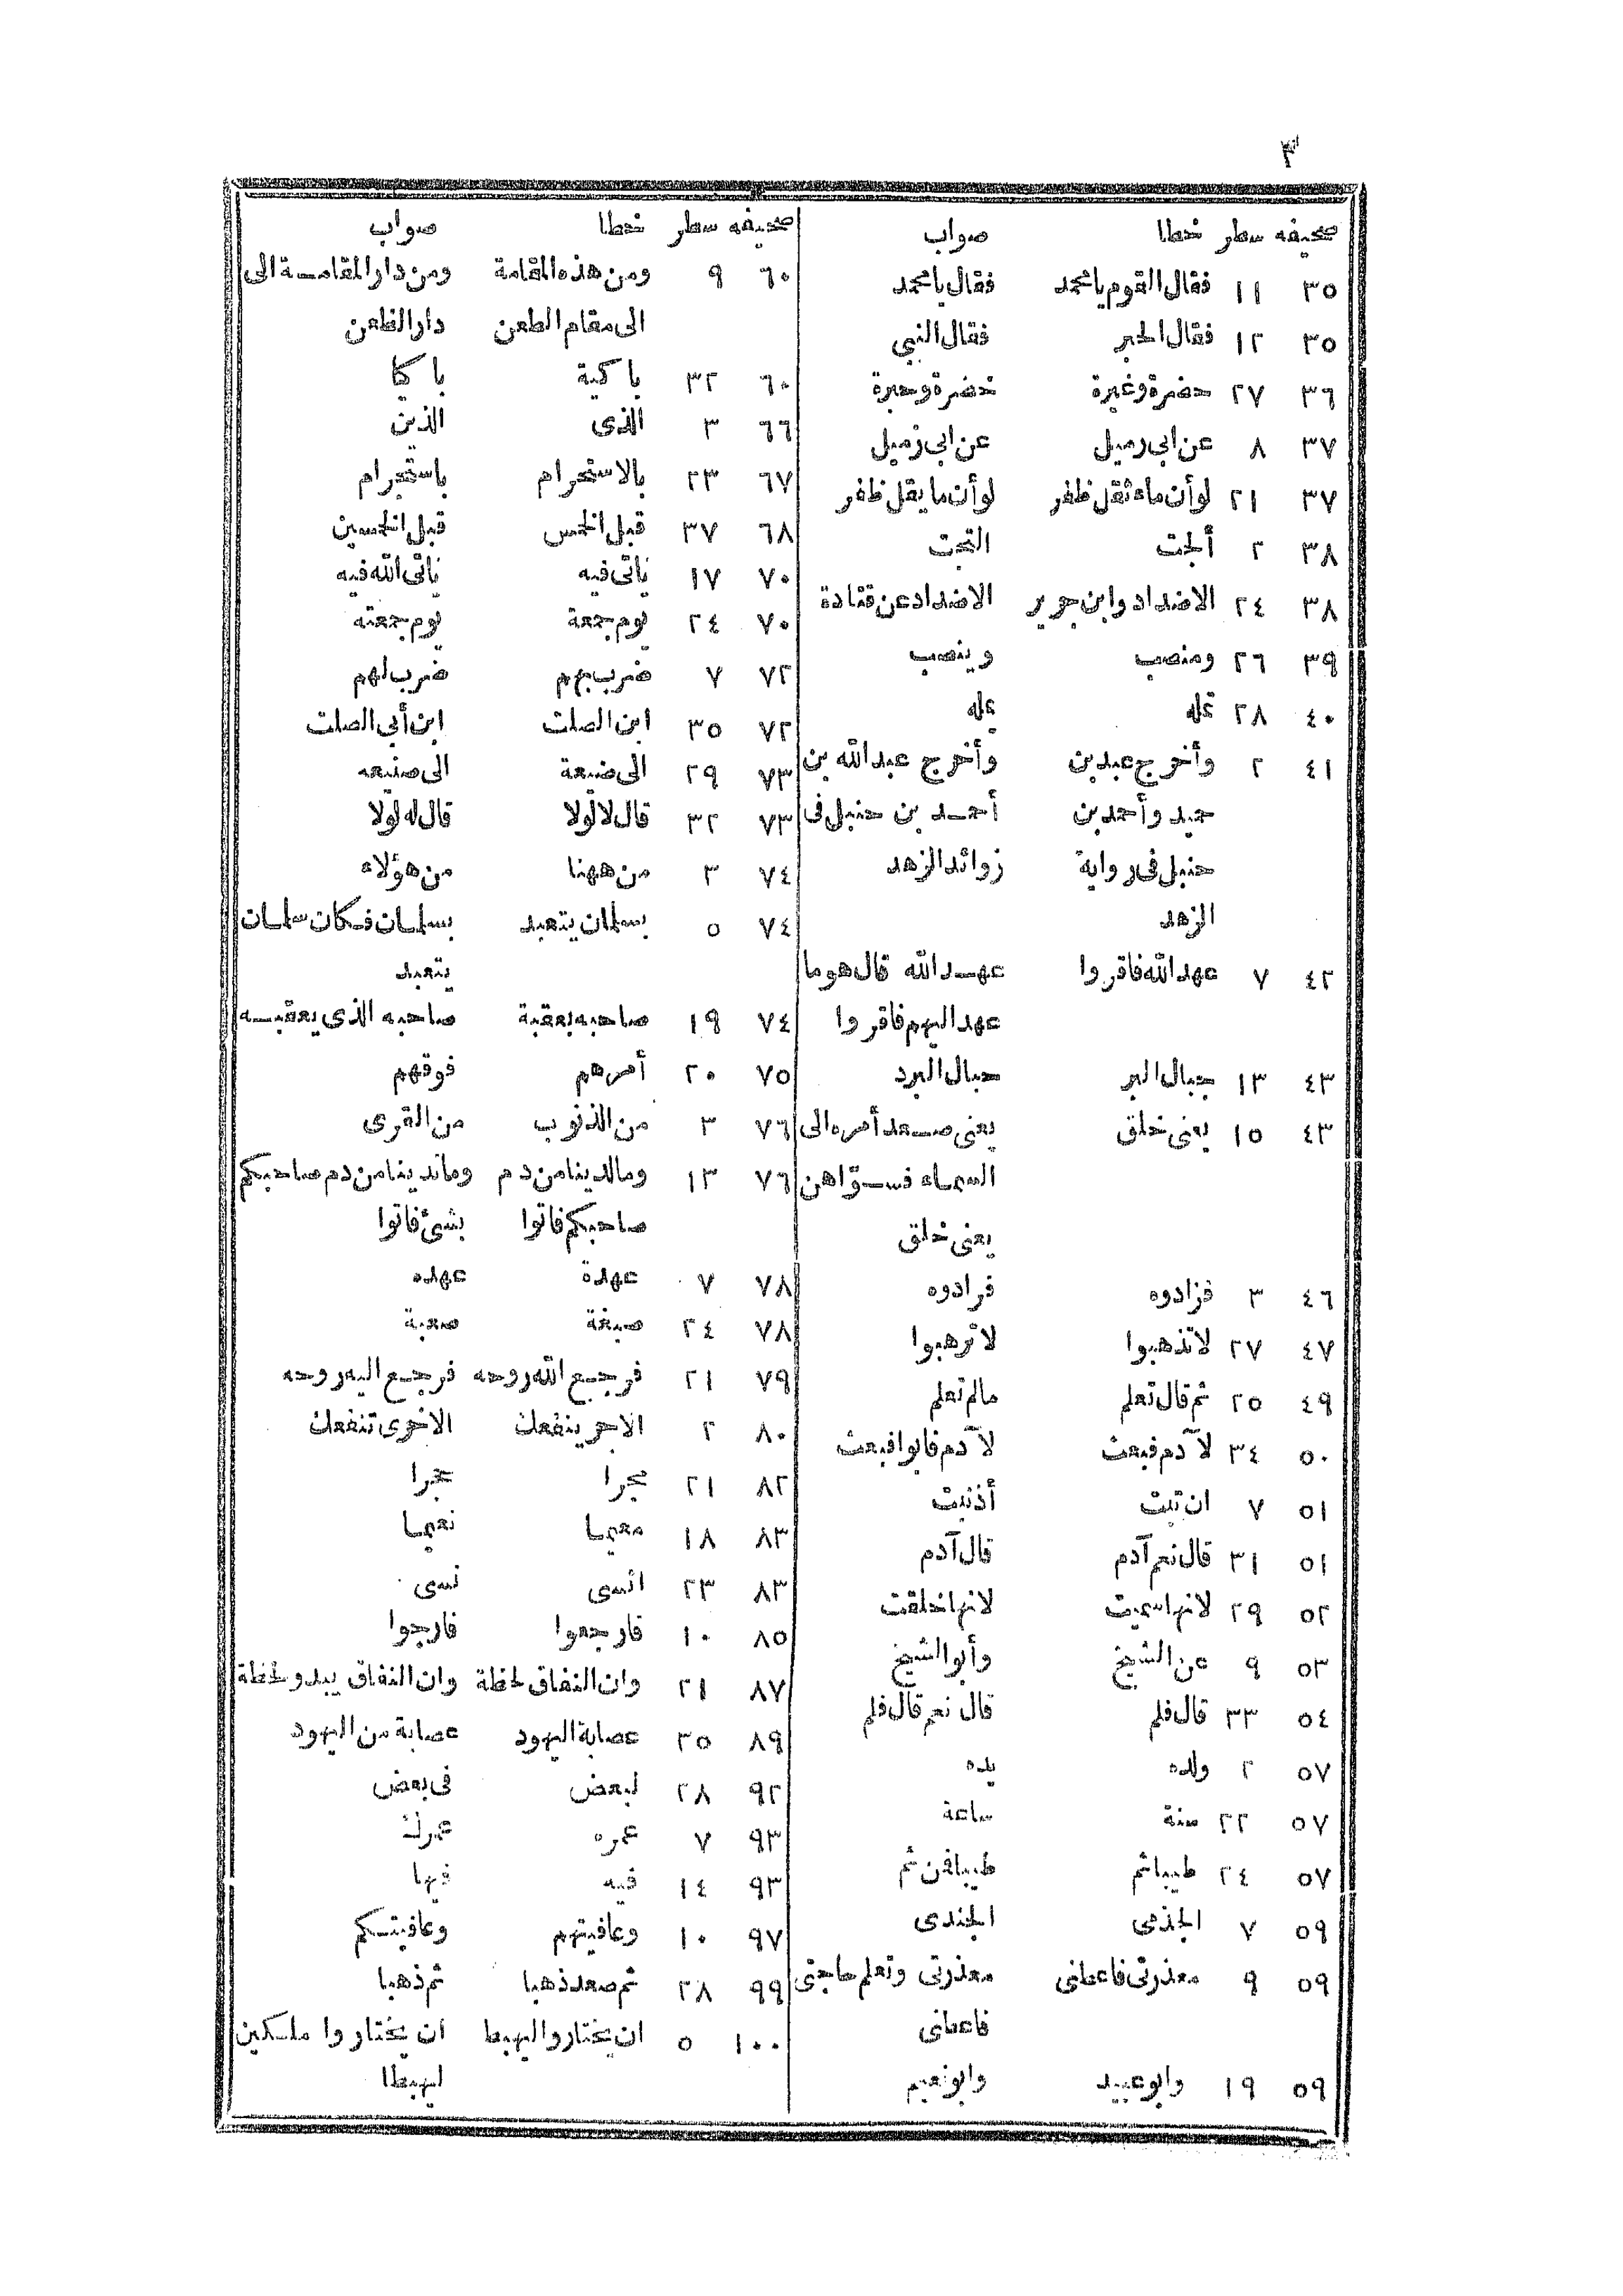 ٣
صحيفه سطر خطا صواب
٣٥ ١١ فقال القوم يا محمد فقال يا محمد
٣٥ ١٢ فقال الحبر فقال النبي
٣٦ ٢٧ حضرة وغيرة خضرة وحبرة
٣٧ ٨ عن ابى رميل عن ابى زميل
٣٧ ٢١ لو أن ماء ثقل ظفر لو أن ما يقل ظفر
٣٨ ٢ ألجت التجت
٣٨ ٢٤ الاضداد وابن جرير الاضداد عن قتادة
٣٩ ٢٦ ومنصب وينصب
٤٠ ٢٨
٤١ ٢ وأخرج عبد بن وأخرج عبد الله بن
حميد وأحمد بن أحمد بن حنبل فى
حنبل فى رواية زوائد الزهد
الزهد
٤٢ ٧ عهد الله فاقروا عهد الله قال هو ما
عهد اليهم فاقروا
٤٣ ١٣ جبال البر جبال البرد
٤٣ ١٥ يعنى خلق يعنى صعد أمره الى
السماء فسوّاهن
يعنى خلق
٤٦ ٣ فزادوه فرادوه
٤٧ ٢٧ لا تذهبوا لا ترهبوا
٤٩ ٢٥ ثم قال تعلم مالم تعلم
٥٠ ٣٤ لآدم فبعث لآدم فابوا فبعث
٥١ ٧ ان تبت أذنبت
٥١ ٣١ قال نعم آدم قال آدم
٥٢ ٢٩ لانها سميت لانها خلقت
٥٣ ٩ عن الشيخ وأبو الشيخ
٥٤ ٣٣ قال فلم قال نعم قال فلم
٥٧ ٢ ولده يده
٥٧ ٢٢ سنة ساعة
٥٧ ٢٤ طيبا ثم طيبا فمن ثم
٥٩ ٧ الجذمى الجندى
٥٩ ٩ معذرتى فاعطنى معذرتى وتعلم حاجتى
فاعطنى
٥٩ ١٩ وابو عبيد وابو نعيم
صحيفه سطر خطا صواب
٦٠ ٩ ومن هذه المقامة ومن دار المقامة الى
الى مقام الطعن دار الظعن
٦٠ ٣٢ باكية باكيا
٦٦ ٣ الذى الذين
٦٧ ٢٣ بالاستحرام باستجرام
٦٨ ٣٧ قبل الخمس قبل الخمسين
٧٠ ١٧ ناتى فيه ناتى الله فيه
٧٠ ٢٤ يوم جمعة يوم جمعته
٧٢ ٧ ضرب بهم ضرب لهم
٧٢ ٣٥ ابن الصلت ابن أبى الصلت
٧٣ ٢٩ الى ضيعة الى صنيعه
٧٣ ٣٢ قال لا لولا قال له لولا
٧٤ ٣ من ههنا من هؤلاء
٧٤ ٥ بسلمان يتعبد بسلمان فكان سلمان
يتعبد
٧٤ ١٩ صاحبه بعقبة صاحبه الذى يعقبه
٧٥ ٢٠ أمرهم فوقهم
٧٦ ٣ من الذنوب من القرى
٧٦ ١٣ ومالدينا من دم وماندينا من دم صاحبكم
صاحبكم فاتوا بشئ فاتوا
٧٨ ٧ عهدة عهده
٧٨ ٢٤ صيغة صعبة
٧٩ ٢١ فرجع الله روحه فرجع اليه روحه
٨٠ ٢ الاحر ينفعك الاخرى تنفعك
٨٢ ٢١
٨٣ ١٨ معيما نعيما
٨٣ ٢٣ انسى نسى
٨٥ ١٠ فارجعوا فارجوا
٨٧ ٢١ وان النفاق لحظة وان النفاق يبدو لحظة
٨٩ ٣٥ عصابة اليهود عصابة من اليهود
٩٢ ٢٨ لبعض فى بعض
٩٣ ٧ عمره عمرك
٩٣ ١٤ فيه فيها
٩٧ ١٠ وعافيتهم وعافيتكم
٩٩ ٢٨ ثم صعد ذهبا ثم ذهبا
١٠٠ ٥ ان يختاروا ليهبط ان يختاروا ملكين
ليهبطا